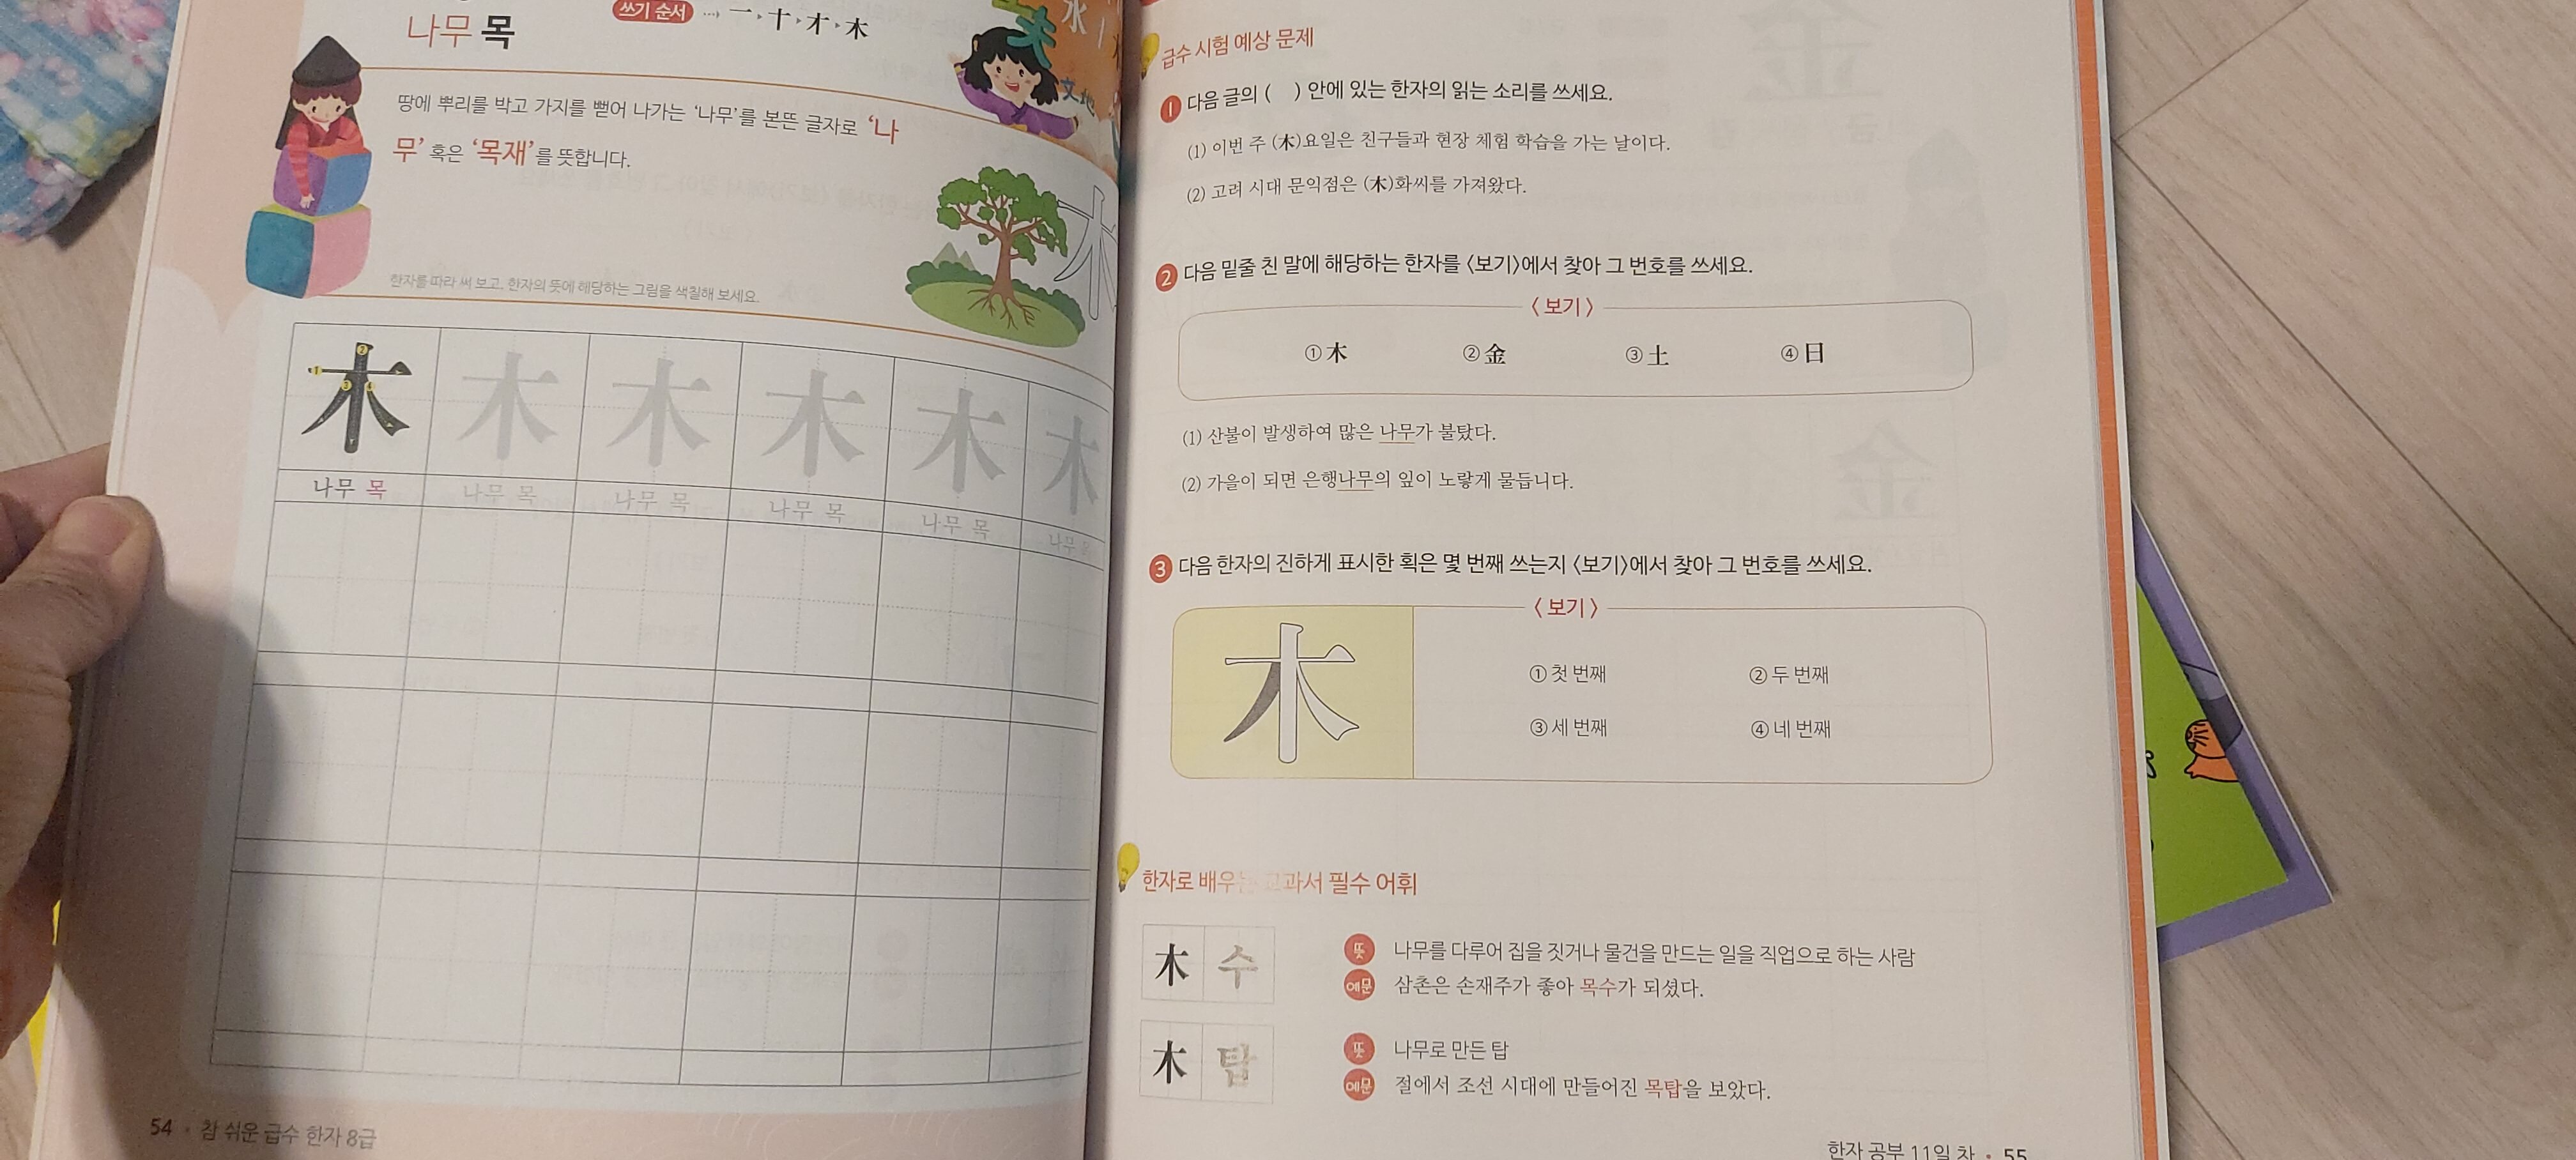 나무 목
쓰기 순서 一 十 才 木
땅에 뿌리를 박고 가지를 뻗어 나가는 '나무'를 본뜬 글자로 '나
무' 혹은 '목재'를 뜻합니다.
한자를 따라 써 보고, 한자의 뜻에 해당하는 그림을 색칠해 보세요.
木 木 木 木 木 木
나무 목 나무 목 나무 목 나무 목 나무 목 나무
54 • 참 쉬운 급수 한자 8급
급수 시험 예상 문제
1 다음 글의 ( ) 안에 있는 한자의 읽는 소리를 쓰세요.
(1) 이번 주 (木)요일은 친구들과 현장 체험 학습을 가는 날이다.
(2) 고려 시대 문익점은 (木)화씨를 가져왔다.
2 다음 밑줄 친 말에 해당하는 한자를 〈보기〉에서 찾아 그 번호를 쓰세요.
〈보기〉
① 木 ② 金 ③ 土 ④ 日
(1) 산불이 발생하여 많은 나무가 불탔다.
(2) 가을이 되면 은행나무의 잎이 노랗게 물듭니다.
3 다음 한자의 진하게 표시한 획은 몇 번째 쓰는지 〈보기〉에서 찾아 그 번호를 쓰세요.
〈보기〉
木
① 첫 번째 ② 두 번째
③ 세 번째 ④ 네 번째
한자로 배우는 교과서 필수 어휘
木 수
뜻 나무를 다루어 집을 짓거나 물건을 만드는 일을 직업으로 하는 사람
예문 삼촌은 손재주가 좋아 목수가 되셨다.
木 탑
뜻 나무로 만든 탑
예문 절에서 조선 시대에 만들어진 목탑을 보았다.
한자 공부 11일 차 • 55